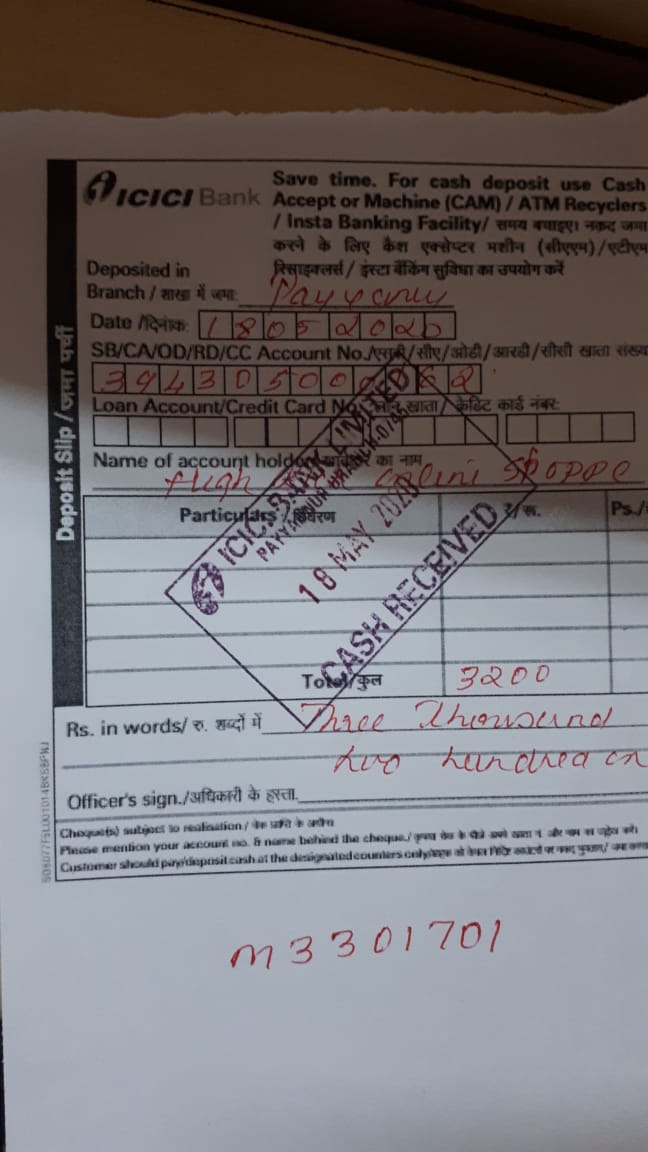 ICICI Bank
Save time. For cash deposit use Cash
Accept or Machine (CAM) / ATM Recyclers
/ Insta Banking Facility/ समय बचाइए। नकद जमा
करने के लिए कैश एक्सेप्टर मशीन (सीएएम)/एटीएम
रिसाइक्लर्स/ इंस्टा बैंकिंग सुविधा का उपयोग करें
Deposited in
Branch / शाखा में जमा:
Date /दिनांक: 18052020
SB/CA/OD/RD/CC Account No./एसबी/सीए/ओडी/आरडी/सीसी खाता संख्य
Loan Account/Credit Card No. खाता/ क्रेडिट कार्ड नंबर:
Name of account holder का नाम
High Shoppe
Particulars / विवरण ₹/रू. Ps./
ICICI BANK LIMITED
PAYYANUR BRANCH-0745
18 MAY 2020
CASH RECEIVED
Total/कुल 3200
Rs. in words/ रु. शब्दों में Three Thousand
two hundred on
Officer's sign./अधिकारी के हस्ता.
Cheque(s) subject to realisation /
Please mention your account no. & name behind the cheque./
Customer should pay/deposit cash at the designated counters only/
Deposit Slip /जमा पर्ची
M3301701